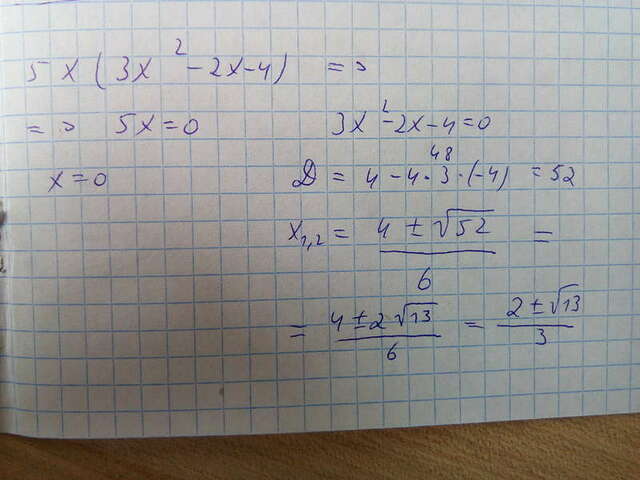 5x(3x² - 2x - 4) =>
=> 5x = 0 3x² - 2x - 4 = 0
48
x = 0 D = 4 - 4 · 3 · (-4) = 52
x₁,₂ = (4 ± √52)/6 =
= (4 ± 2√13)/6 = (2 ± √13)/3